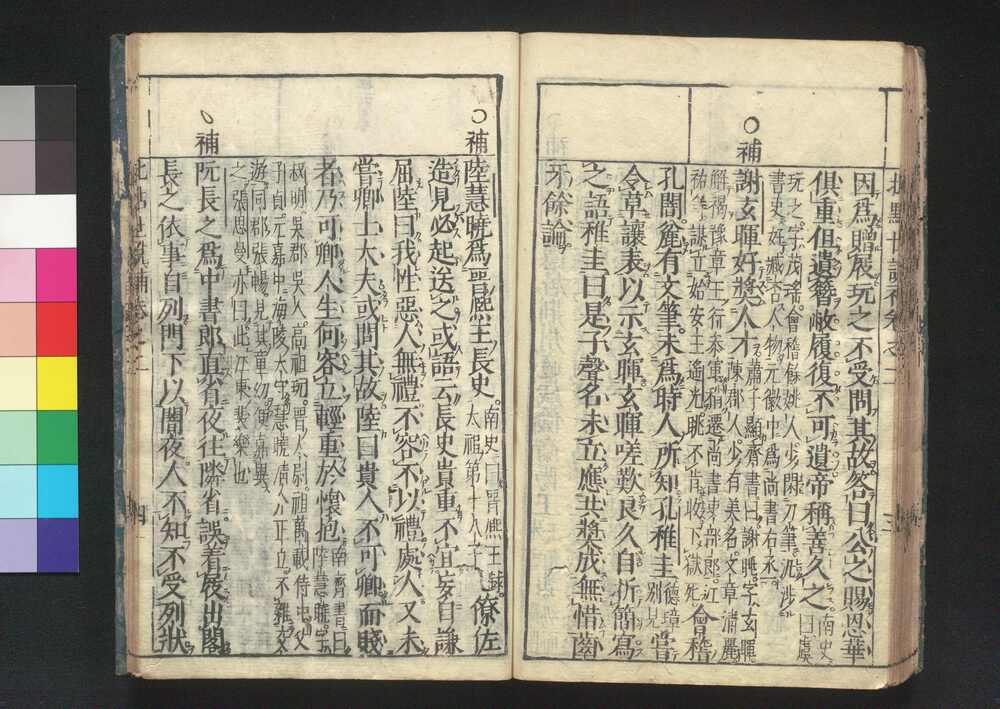 因爲贈屐玩之不受問其故答曰公之賜恩華
俱重但遺簪敝履復不可遺帝稱善久之 南史曰虞
玩之字茂瑤會稽餘姚人少閑刀筆汎涉
書史 元徽中爲尚書右丞
補
謝玄暉好奬人才 蕭子顯齊書曰謝朓字玄暉
陳郡人少有美名文章清麗
解褐豫章王行參軍稍遷尚書吏部郎江
祏等謀立始安王遙光朓不肯收下獄死 會稽
孔闓麄有文筆未爲時人所知孔稚圭 德璋別見 嘗
令草讓表以示玄暉玄暉嗟歎良久自折簡寫
之語稚圭曰是子聲名未立應共奬成無惜齒
牙餘論
補
陸慧曉爲晉熙王長史 南史曰晉熙王銶
太祖第十八子 僚佐
造見必起送之或語云長史貴重不宜妄自謙
屈陸曰我性惡人無禮不容不以禮處人又未
嘗卿士大夫或問其故陸曰貴人不可卿而賤
者乃可卿人生何容立輕重於懷抱 南齊書曰陸慧曉字
叔明吳郡吳人高祖玩晉太尉祖萬載侍中父
子眞元嘉中海陵太守慧曉清介正立不雜交
游同郡張暢見其童幼便嘉異
之張思曼亦曰此江東裴樂也
補
阮長之爲中書郎直省夜往隣省誤着屐出閤
長之依事自列門下以闇夜人不知不受列狀
四